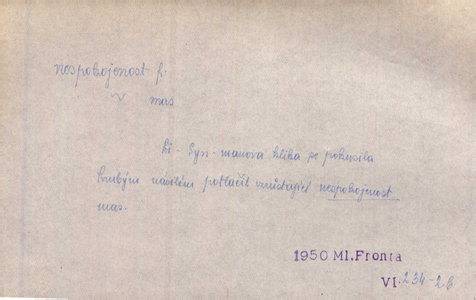 nespokojenost f.
v mas
Li-Syn-manova klika se pokusila
hrubým násilím potlačit vzrůstající nespokojenost
mas.
1950 Ml.Fronta
VI. 234-2b